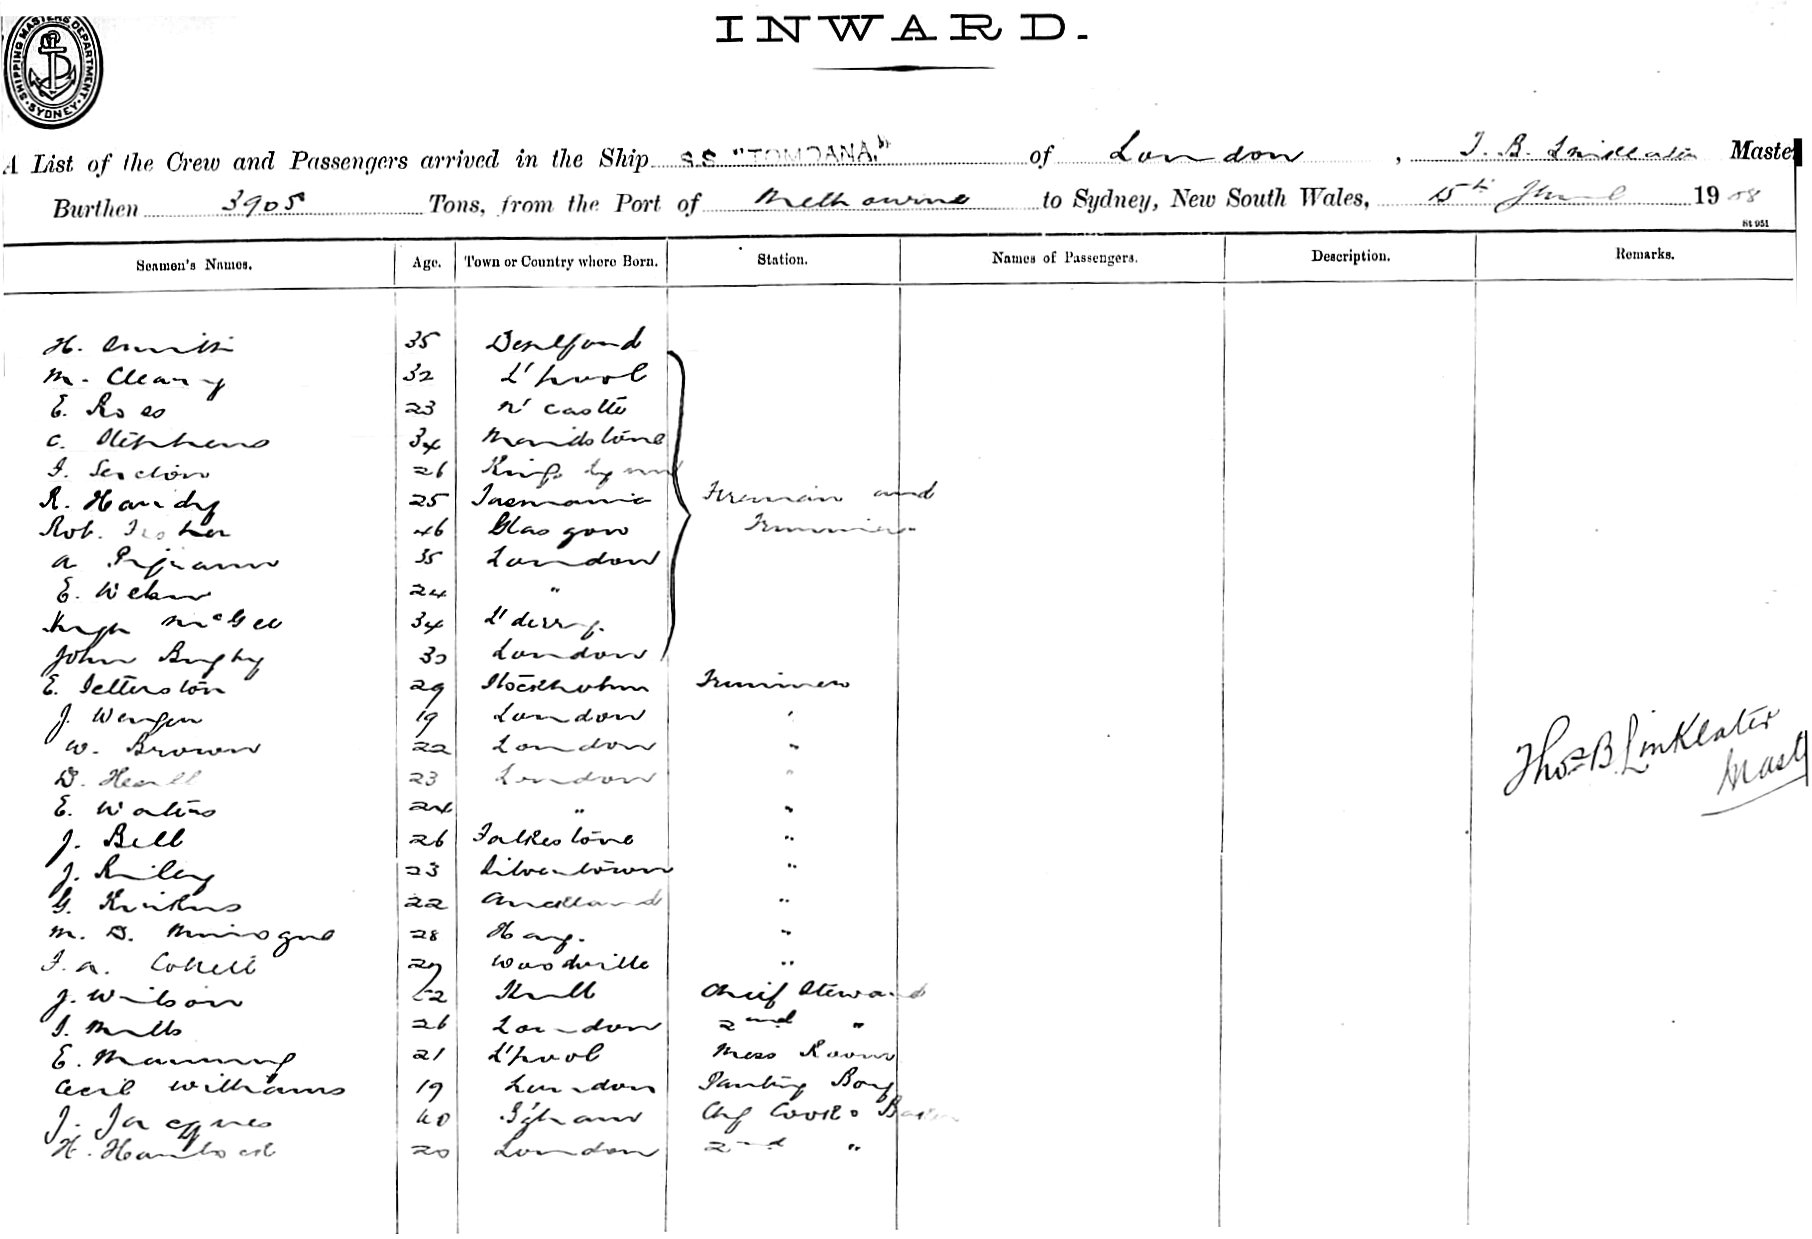 SHIPPING MASTERS DEPARTMENT. SYDNEY
INWARD.
A List of the Crew and Passengers arrived in the Ship S.S. of London, T. B. Linklater Master
Burthen 3905 Tons, from the Port of Melbourne to Sydney, New South Wales, 15th 1908
St 951
Seamen's Names. Age. Town or Country where Born. Station. Names of Passengers. Description. Remarks.
H. Smith 35 Deptford
M. Cleary 32 L'pool
E. Ross 23 N'castle
C. Stephens 34 Maidstone
26 Kings Lynn
R. Handy 25 Tasmania Fireman and
Rob. 46 Glasgow Trimmers
A 35 London
E. 24 "
Hugh McGee 34 L'derry.
John 30 London
E. 29 Stockholm Trimmers
J. 19 London "
W. Brown 22 London "
D. 23 London "
E. Waters 24 " "
J. Bell 26 Folkestone "
J. Riley 23 Silvertown "
G. 22 Auckland "
M. D. Minogue 28 "
Woodville "
J. Wilson Hull Chief Steward
Mills 26 London 2nd "
E. Manning 21 L'pool Mess Room
Cecil Williams 19 London Pantry Boy
J. Jacques 40 B'ham Chf Cook & Baker
H. 20 London 2nd "
Thos B. Linklater
Master